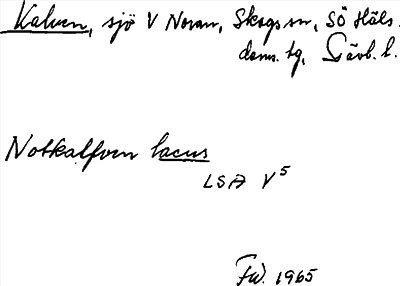 Kalven, sjö V Noran, Skogs sn, SÖ Häls.
doms. tg, Gävb. l.
Notkalfven lacus
LSA V⁵
F.W. 1965